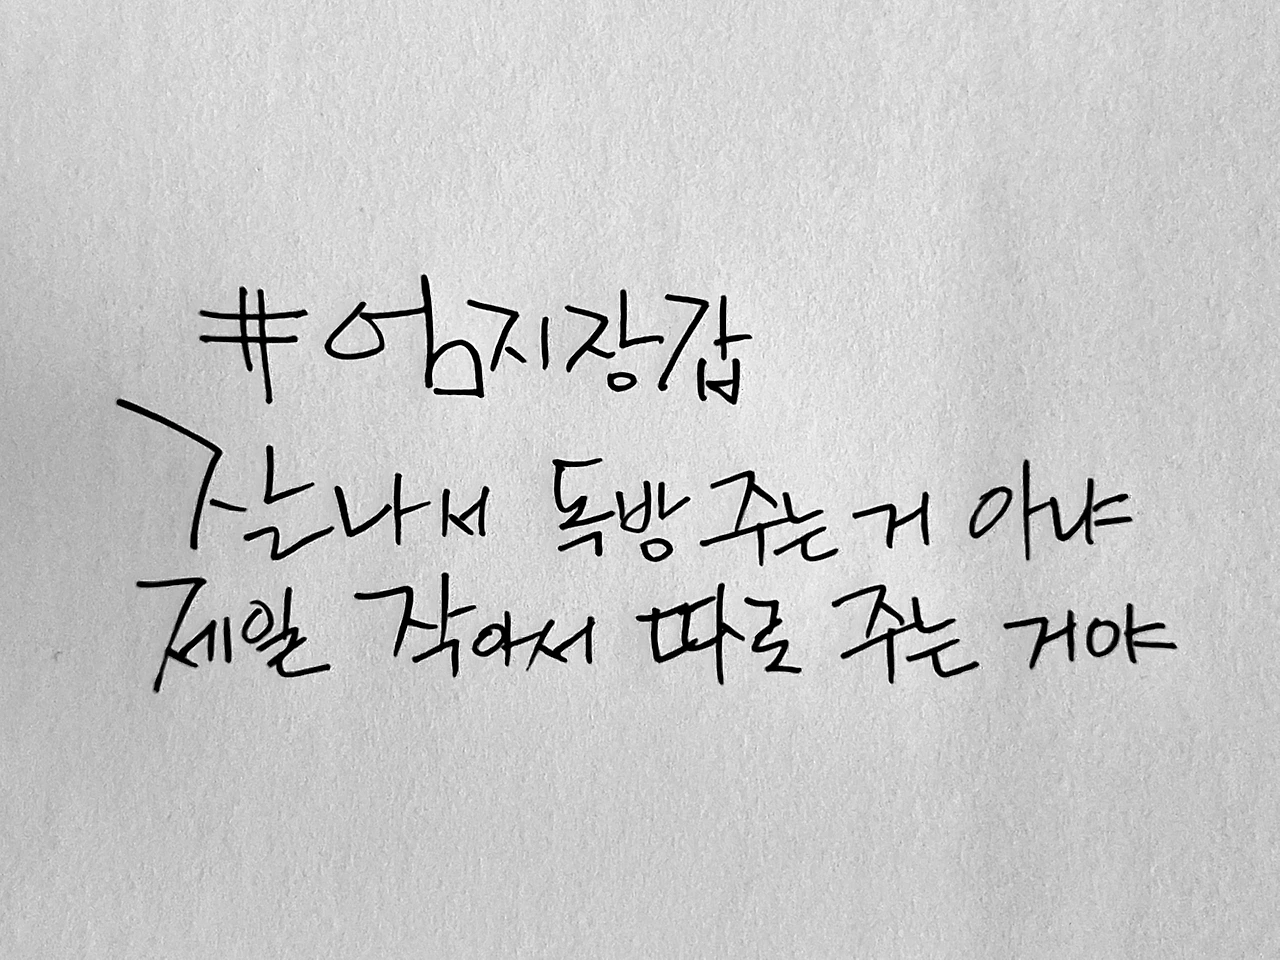 #엄지장갑
잘나서 독방 주는 거 아냐
제일 작아서 따로 주는 거야